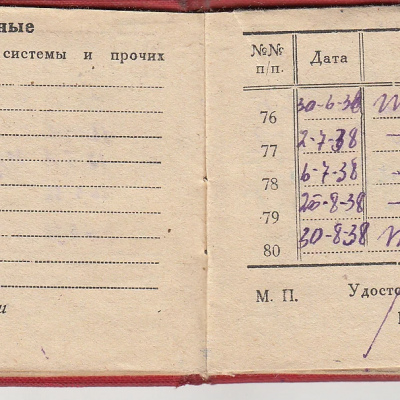 ные
системы и прочих
и
№№ п/п. Дата
76 30-6-38
77 2-7-38 —
78 6-7-38 —
79 25-8-38 —
80 30-8-38
М. П. Удосто